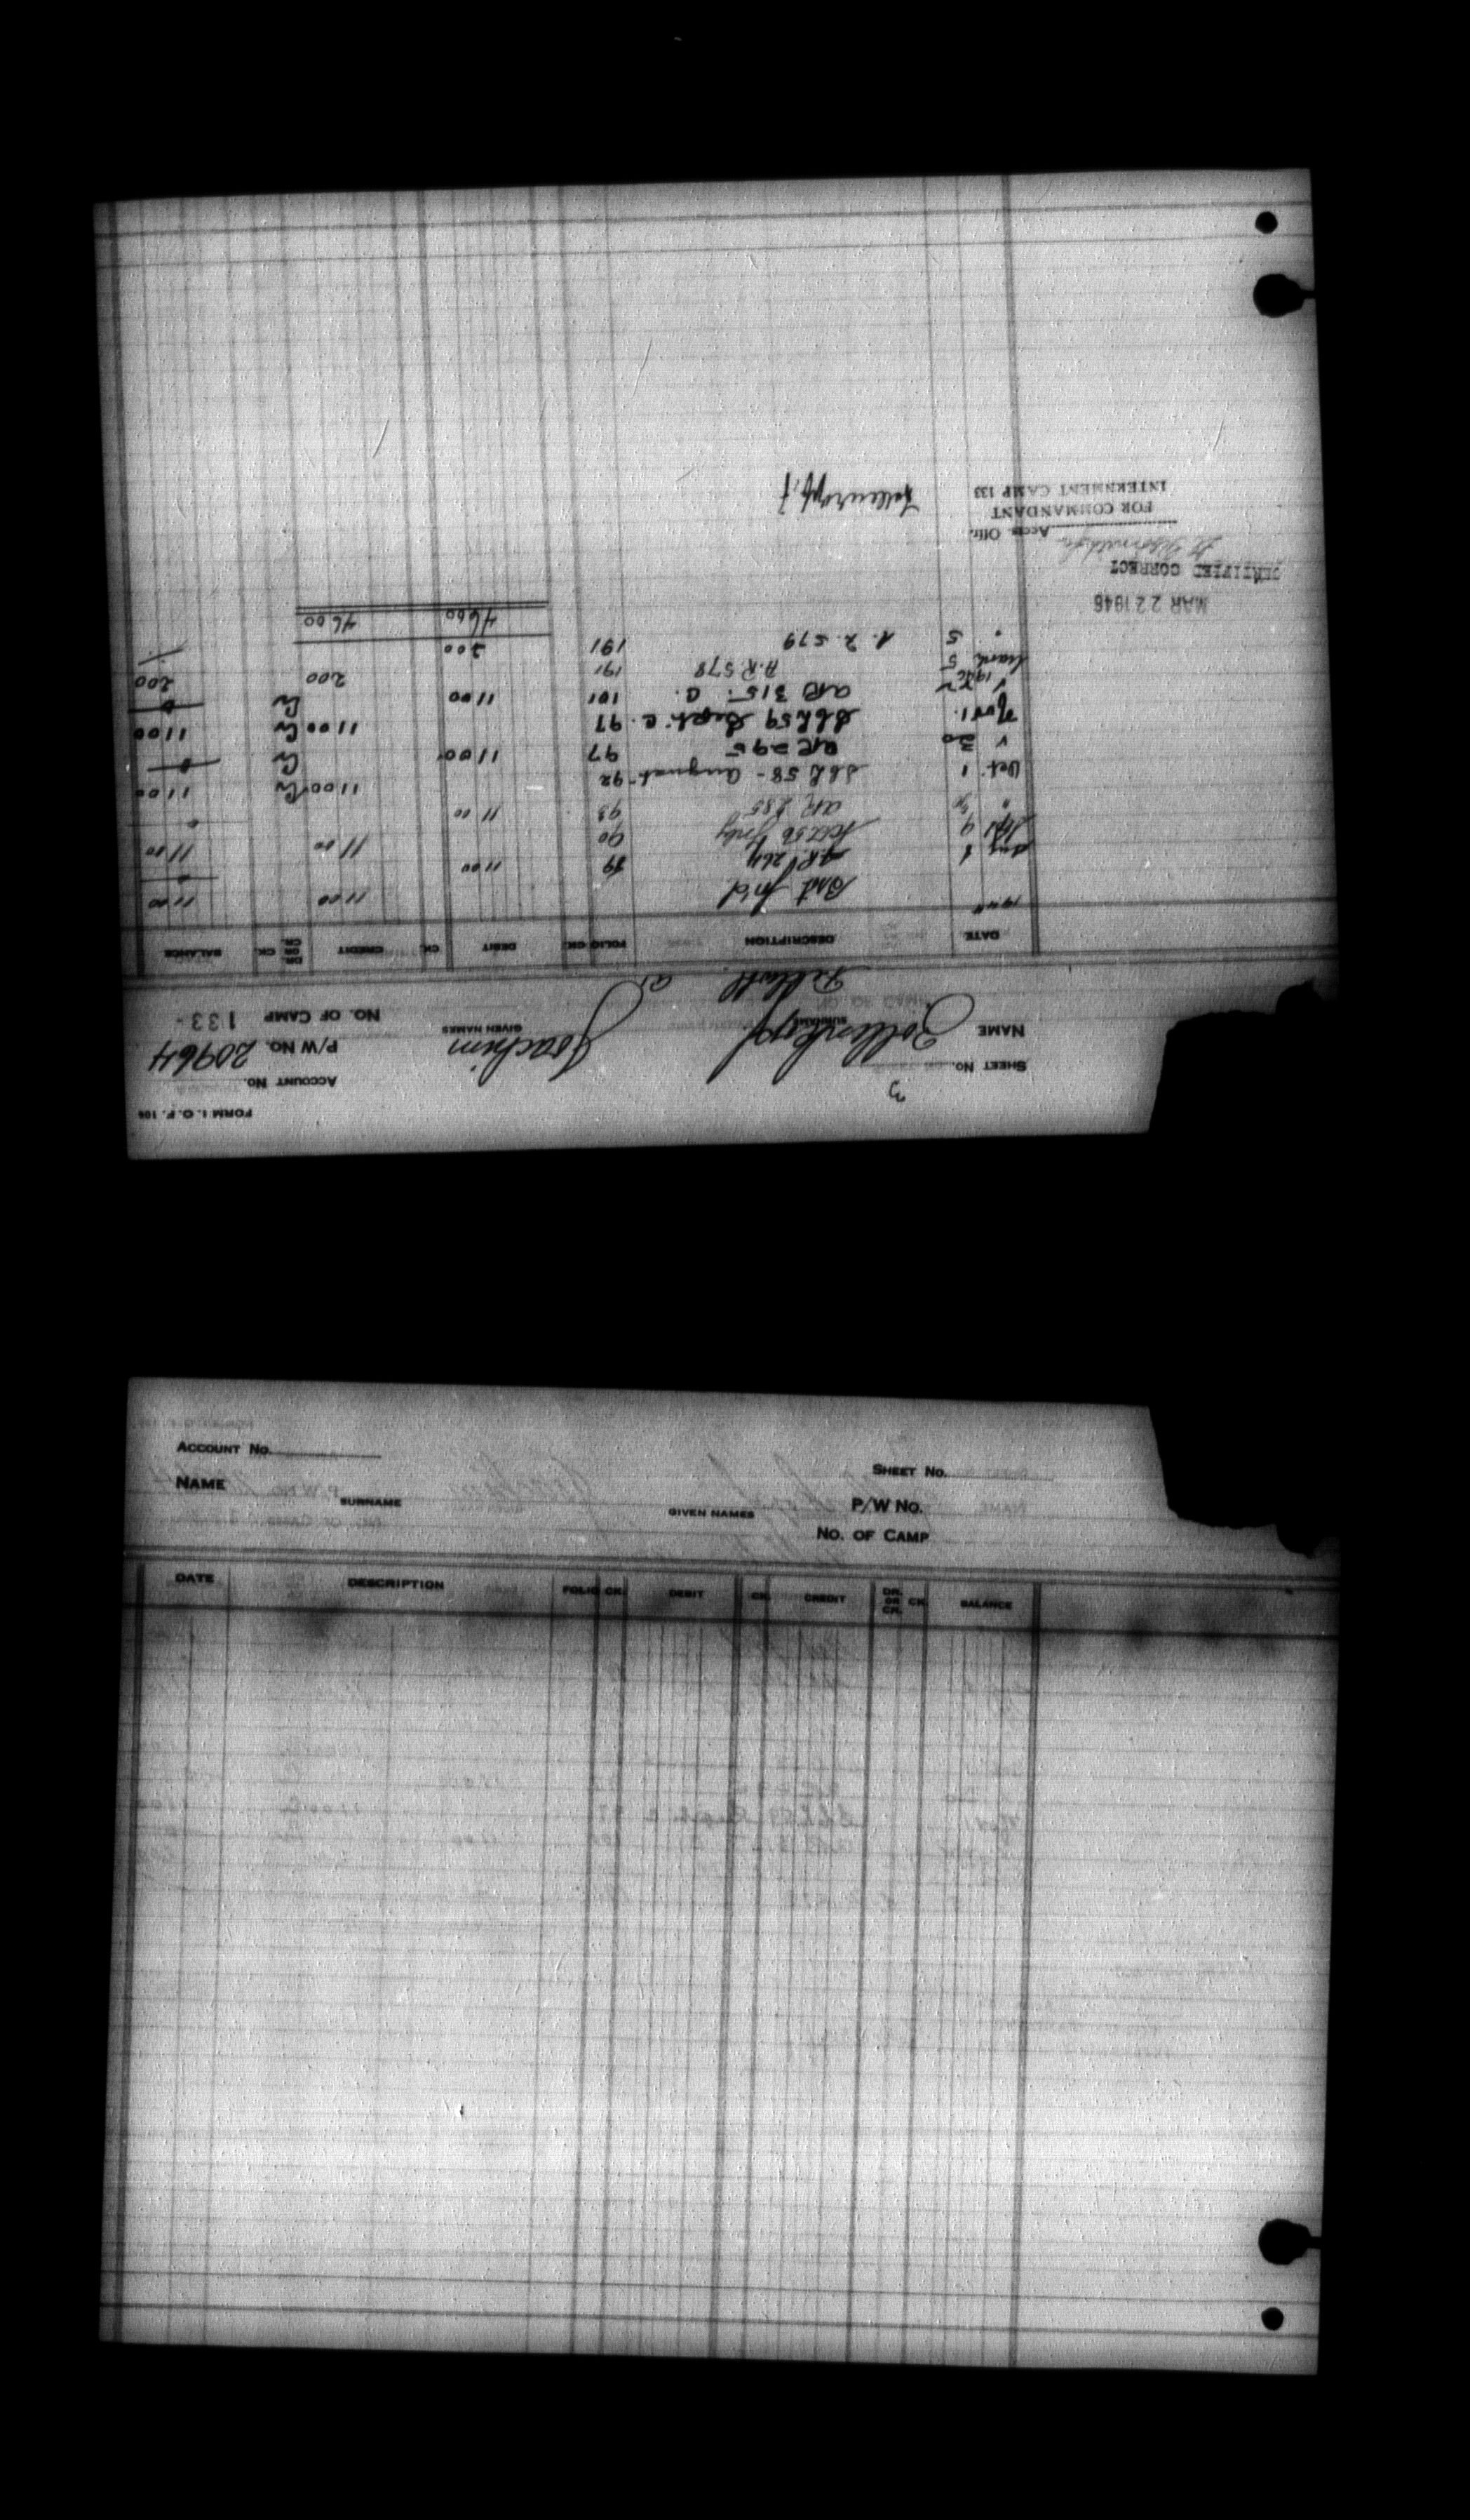 FORM I. O. F. 106
SHEET No. 3 ACCOUNT No.
NAME Zollenkopf Joachim P/W No. 20964
SURNAME GIVEN NAMES NO. OF CAMP 133-
DATE DESCRIPTION FOLIO CK. DEBIT CK. CREDIT DR. OR CR. CK. BALANCE
Bal f'd 1100 1100
Aug 1 AR 264 89 1100 0
Sept 9 56 July 90 1100 1100
" 30 AR 285 93 1100 0
Oct. 1 SLR 58 - August - 92 1100 Cr 1100
" 30 AR 295 97 1100 Cr 0
Nov 1. SLR 59 Sept: C. 97 1100 Cr 1100
" AR 315. C. 101 1100 Cr 0
1946
March 5 A.R 578 191 200 200
" 5 579 191 200 —
4600 4600
MAR 22 1946
CERTIFIED CORRECT
Accts. Offr.
FOR COMMANDANT
INTERNMENT CAMP 133
ACCOUNT No. SHEET No.
NAME P/W No.
SURNAME GIVEN NAMES
No. OF CAMP
DATE DESCRIPTION FOLIO CK. DEBIT CK. CREDIT DR. OR CR. CK. BALANCE